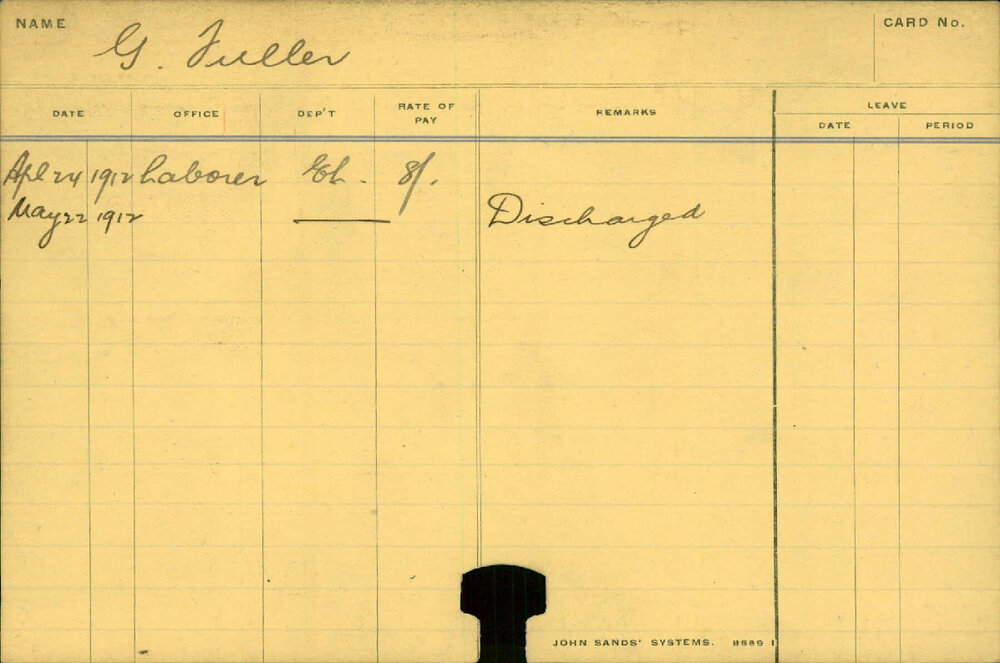 NAME G. Fuller CARD No.
DATE OFFICE DEP'T RATE OF PAY REMARKS LEAVE
DATE PERIOD
Apl 24 1912 Laborer 8/.
May 22 1912 Discharged
JOHN SANDS' SYSTEMS. 8689